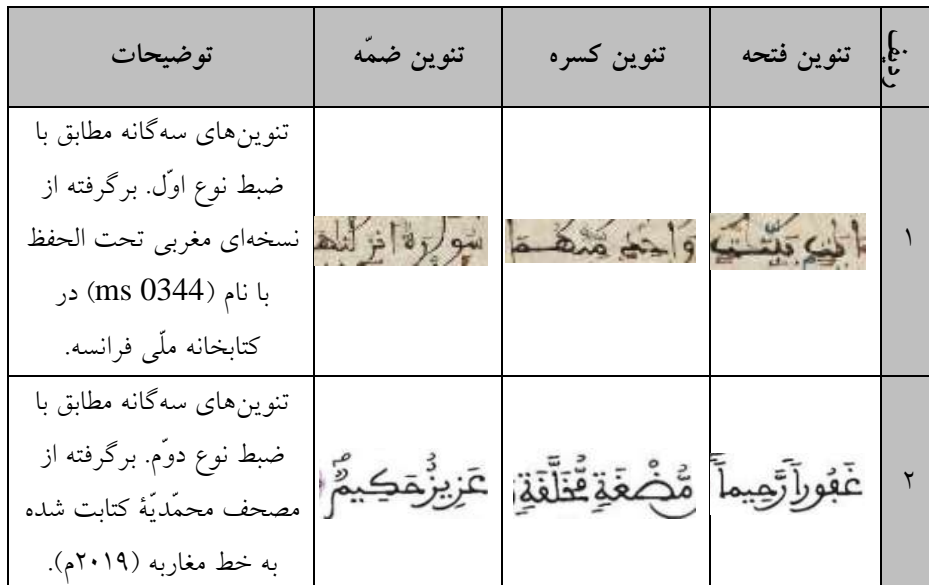 ردیف تنوین فتحه تنوین کسره تنوین ضمّه توضیحات
۱
ءايت بيّنت
واحد منهما
سورة انزلنها
تنوین‌های سه‌گانه مطابق با
ضبط نوع اوّل. برگرفته از
نسخه‌ای مغربی تحت الحفظ
با نام (ms 0344) در
کتابخانه ملّی فرانسه.
۲
غَفُوراً رَّحِيماً
مُّضْغَةٍ مُّخَلَّقَةٍ
عَزِيزٌ حَكِيمٌ
تنوین‌های سه‌گانه مطابق با
ضبط نوع دوّم. برگرفته از
مصحف محمّدیّهٔ کتابت شده
به خط مغاربه (۲۰۱۹م).